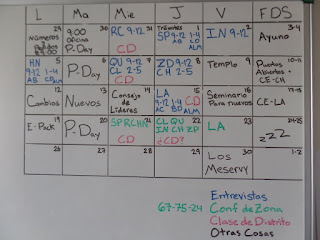 L Ma Mie J V FDS
29 30 31 1 2 3-4
Números
Pedidos
9:00
oficina
P-Day
RC 9-12
CD
Trámites
SP 9-12 1-4
AB CD
ALM
IN 9-12
Ayuno
5 6 7 8 9 10-11
HN
9-12 1-4
AB CD ALM
P-Day
QU 9-12
CL 2-5
CD
ZD 9-12
CH 2-5
Templo
Puertas
Abiertas
CE-CH
12 13 14 15 16 17-18
Cambios
Nuevos
Consejo
de
Líderes
LA
9-12 1-4 CD
AB ALM
Seminario
Para nuevos
CE-LA
19 20 21 22 23 24-25
E-Pack
P-Day
SP RC HN
CD
CL QU
IN CH ZP
¿CD?
LA
zZZ
26 27 28 29 30 1-2
Los
Meservy
Entrevistas
67-75-24 Conf de Zona
Clase de Distrito
Otras Cosas